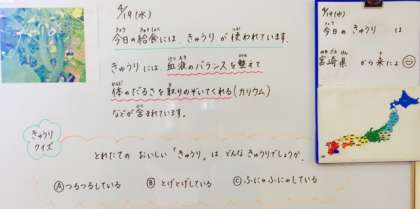 4/19(水)
今日の給食には きゅうり が 使われています.
きゅうり には、血液のバランスを整えて
体のだるさを取りのぞいてくれる(カリウム)
などが 含まれています.
きゅうり
クイズ
とれたての おいしい「きゅうり」は どんなきゅうりでしょうか.
Ⓐつるつるしている Ⓑとげとげしている Ⓒふにゃふにゃしている
4/19(水)
今日の きゅうり は
宮崎県 から来たよ